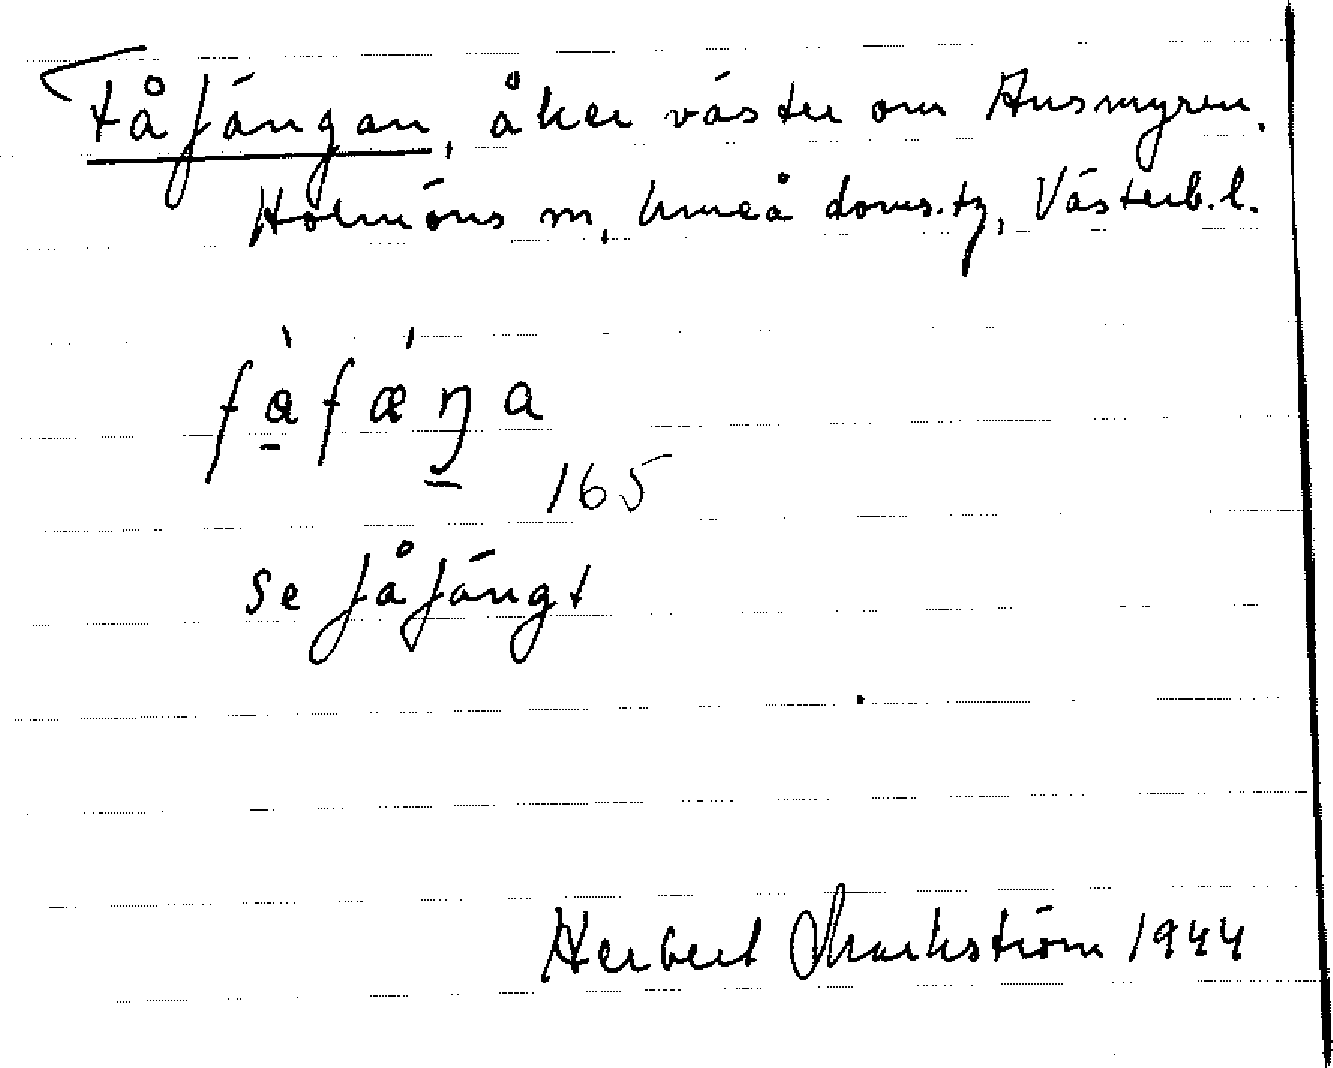 Fåfängan, åker väster om Ansmyren,
Holmöns sn, Umeå doms.tg, Västerb.l.
fàfæ̀ŋa
165
se fåfängt
Herbert Markström 1944